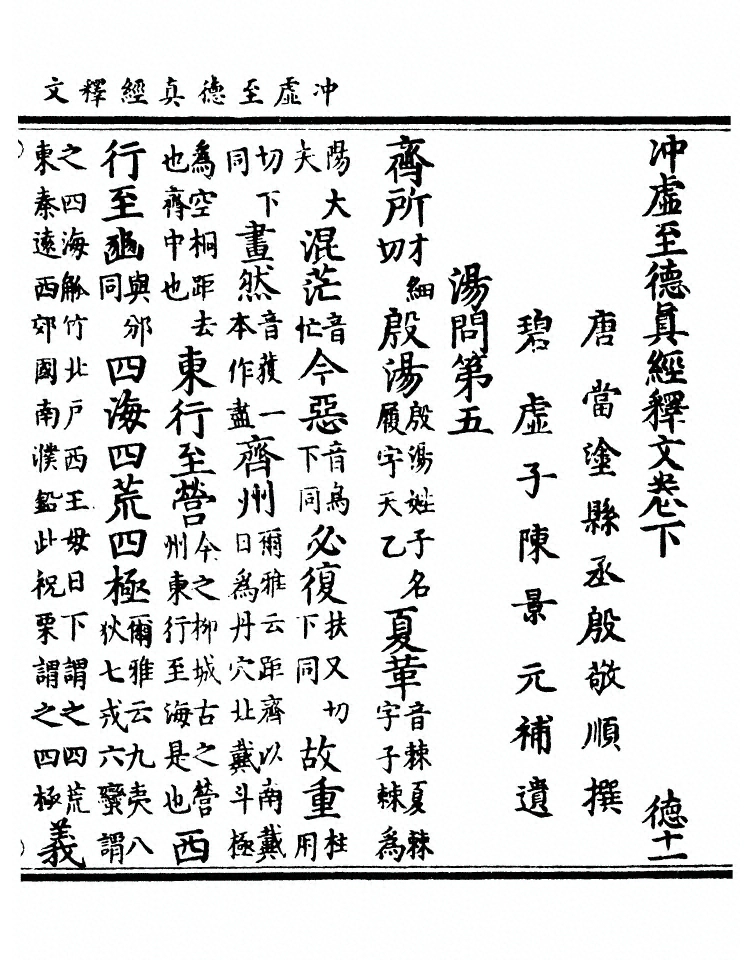 冲虛至德真經釋文
冲虛至德真經釋文卷下 德十一
唐當塗縣丞殷敬順撰
碧虛子陳景元補遺
湯問第五
齊所才細切殷湯殷湯姓子名履字天乙夏革音棘夏棘字子棘為
陽大夫混茫音忙今惡音烏下同必復扶又切下同故重柱用
切下同畫然音獲一本作盡齊州爾雅云距齊以南戴日為丹穴北戴斗極
為空桐距去也齊中也東行至營今之柳城古之營州東行至海是也西
行至豳與邠同四海四荒四極爾雅云九夷八狄七戎六蠻謂
之四海觚竹北戶西王母日下謂之四荒東秦遠西邠國南濮鈆此祝栗謂之四極義